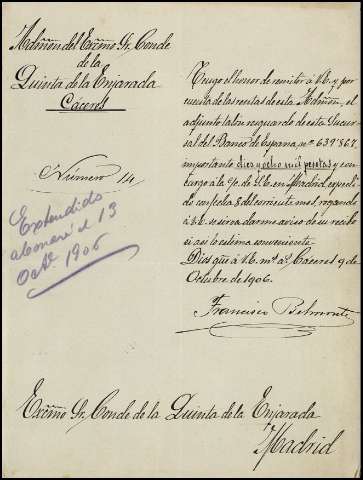 Admón del Excmo Sr. Conde
de la
Quinta de la Enjarada
Cáceres
Número 14
Expendido
abonaré el 13
Octe 1906
Tengo el honor de remitir á V.E. y por
cuenta de las rentas de esta Admón, el
adjunto talón resguardo de esta Sucur-
sal del Banco de España, nº 639.867,
importante diez y ocho mil pesetas y con
cargo á la c/c de V.E. en Madrid, expedi-
do con fecha 8 del corriente mes, rogando
á V.E. se sirva darme aviso de su recibo
si así lo estima conveniente.
Dios gue á V.E. ms as. Cáceres 9 de
Octubre de 1906.
Francisco Belmonte
Excmo Sr. Conde de la Quinta de la Enjarada
Madrid